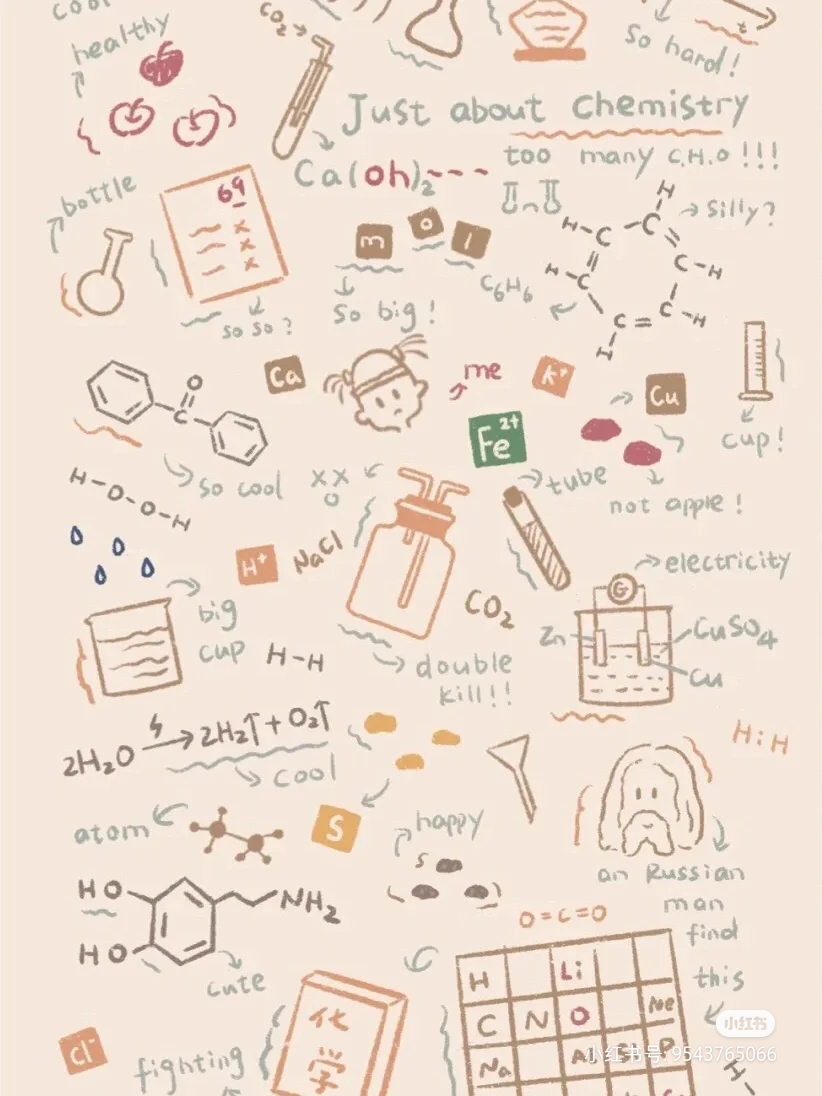 cool
healthy
CO2
t
So hard!
Just about chemistry
Ca(oh)2---
too many C.H.O !!!
bottle
69
x
x
x
so so?
m o l
So big!
C6H6
silly?
H
H-C C
H-C C-H
C=C-H
H
Ca
me
K+
Cu
cup!
O
C
so cool
Fe2+
not apple!
H-O-O-H
XX
O
tube
H+
NaCl
CO2
electricity
G
Zn
CuSO4
Cu
big
cup
H-H
double
kill!!
2H2O → 2H2↑ + O2↑
cool
H:H
atom
S
happy
S
an Russian
man
find
this
HO
HO
NH2
cute
O=C=O
H Li
C N O Ne
Na
Cl-
fighting
化
学
H-
小红书
小红书号: 9543765066